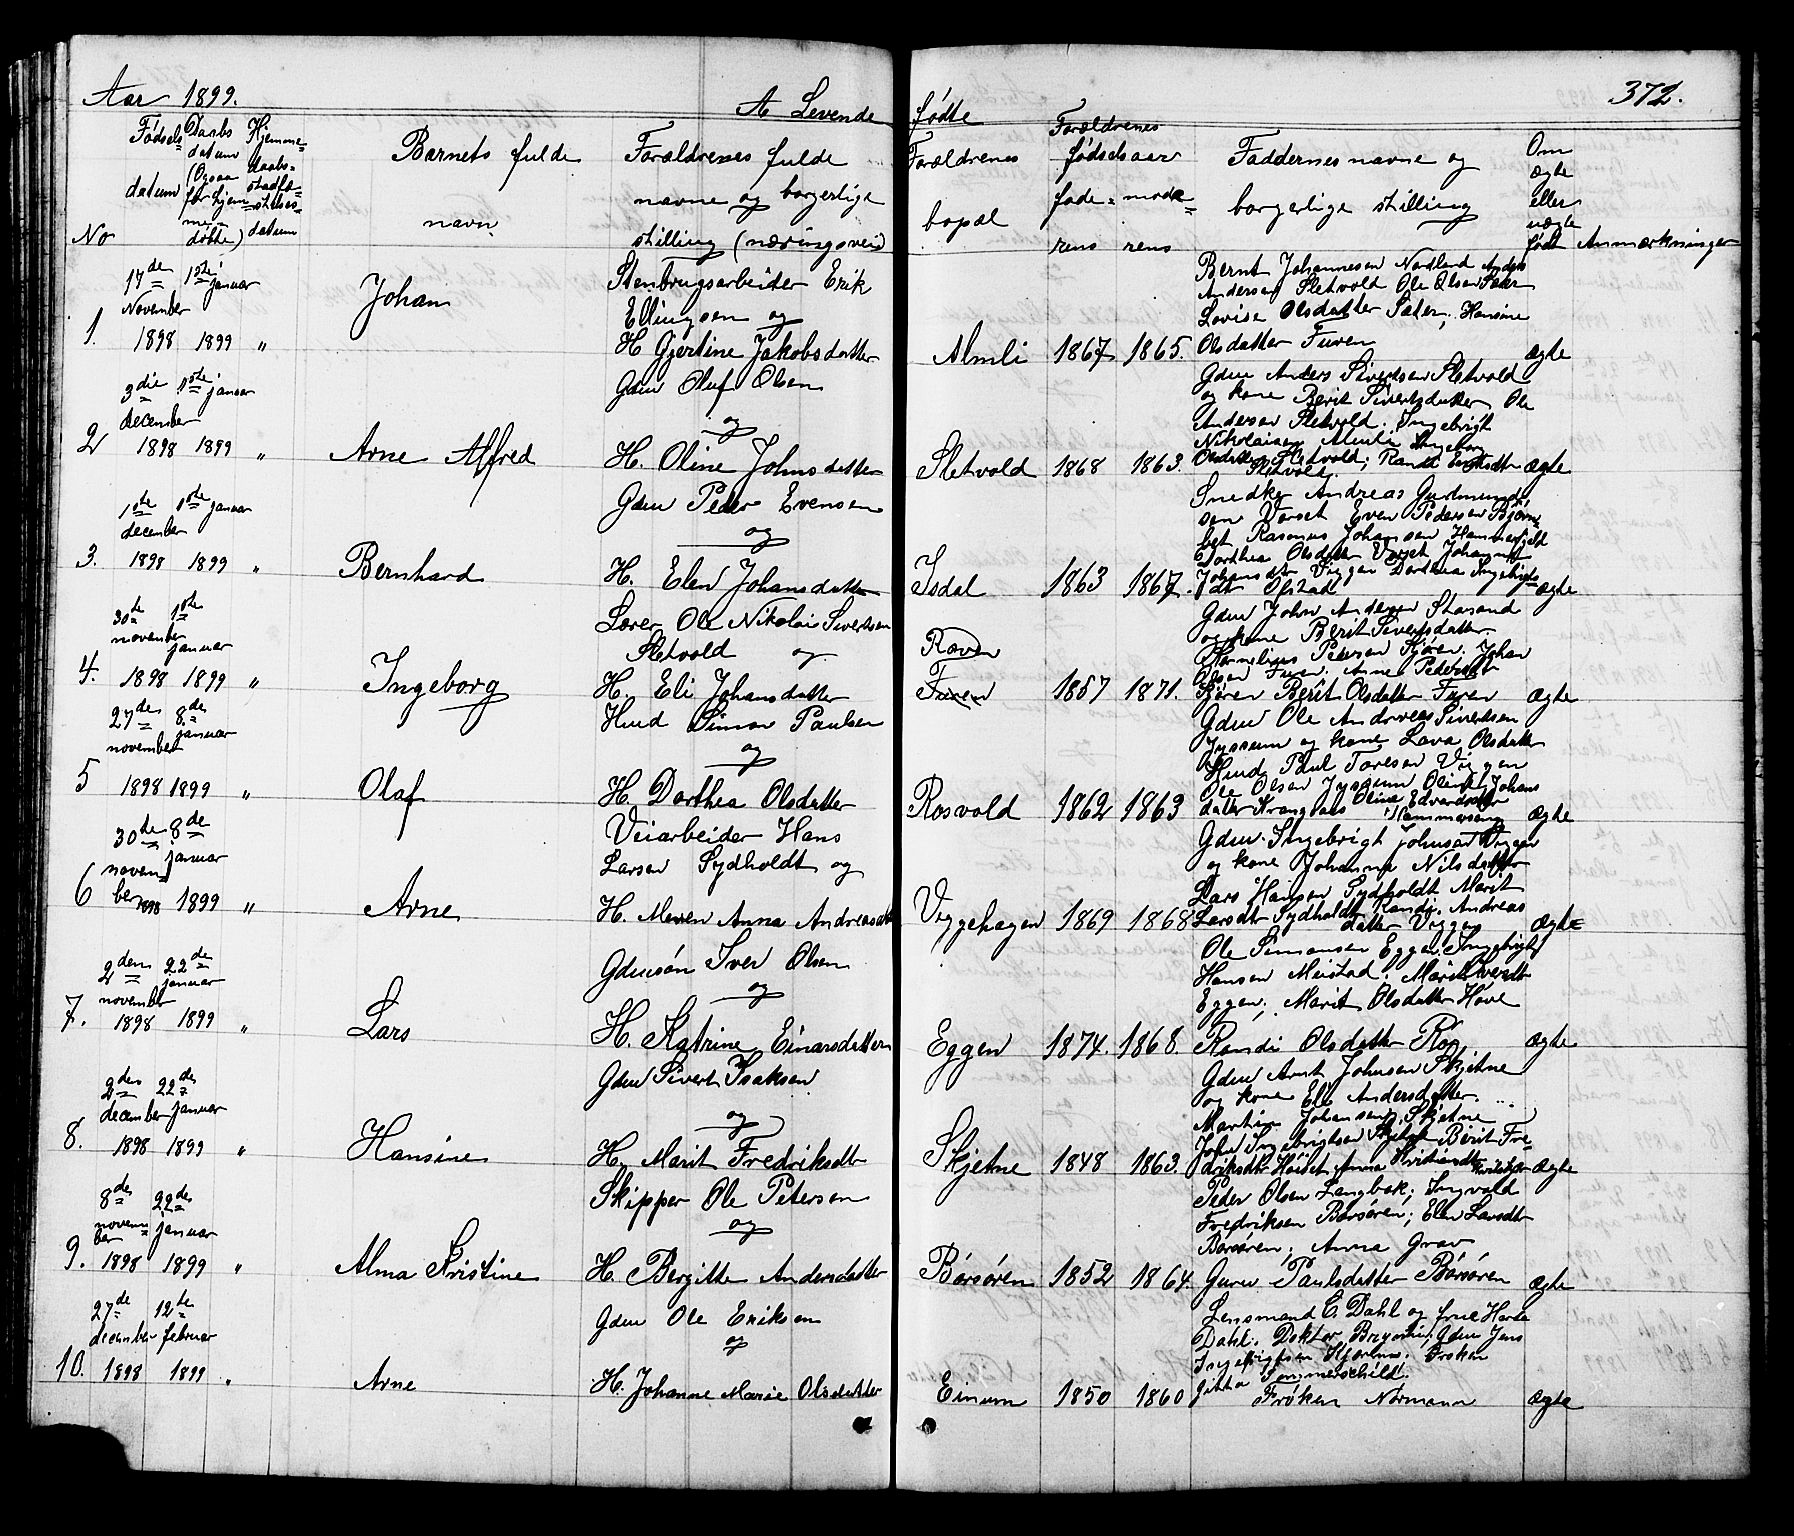 Aar 1899.
A Levende fødte
372.
No
Fødsels datum
Daabs datum (Ogsaa for hjem døbte)
Hjemme daabs stadfæstelses datum
Barnets fulde navn
Forældrenes fulde navne og borgerlige stilling (næringsvei)
Forældrenes bopæl
Forældrenes fødselsaar
faderens moderens
Faddernes navne og borgerlige stilling
Om ægte eller uægte født
Anmærkninger
1. 17de November 1898 1ste januar 1899 "
Johan
Stenbrugsarbeider Erik
Ellingsen og
H. Gjertine Jakobsdatter
Almli 1867 1865.
Bernt Johannesen Nordland Anders
Andersen Sletvold Ole Olsen Sæter
Lovise Olsdatter Sæter; Hansine
Olsdatter Furen
ægte
2 3die december 1898 1ste januar 1899 "
Arne Alfred
Gdm Oluf Olsen
og
H. Oline Johnsdatter
Sletvold 1868 1863.
Gdm Anders Sivertsen Sletvold
og kone Berit Sivertsdatter Ole
Andersen Sletvold. Ingebrigt
Nikolaisen Ingebor
Olsdatter Sletvold; Randi
Sletvold.
ægte
3. 1ste december 1898 1ste januar 1899 "
Bernhard
Gdm Peder Evensen
og
H. Elen Johansdatter
Isdal 1863 1867.
Snedker Andreas Gudmund
sen Vorset Even Pedersen
Rasmus Johansen
Dorthea Olsdatter Vorset
Johansdtr Viggen Dorthea Ingebrigts
dtr Ofstad
ægte
4. 30te november 1898 1ste januar 1899 "
Ingeborg
Lærer Ole Nikolai Sivertsen
Sletvold og
H. Eli Johansdatter
Raven
Furen 1857 1871.
Gdm John Andersen Storsand
og kone Berit Sivertsdatter.
Kornelius Petersen Kjøren. Johan
Olsen Furen; Anne Pedersdtr
Kjøren Berit Olsdatter Furen
ægte
5 27de november 1898 8de januar 1899 "
Olaf
Hmd Simon Paulsen
og
H. Dorthea Olsdatter
Rosvold 1862 1863
Gdm Ole Andreas Sivertsen
Jyssum og kone Lava Olsdatter
Hmd Paul Toresen Viggen
Ole Olsen Jyssum Johans
datter Oline Edvardsdtr
ægte
6 30de november 1898 8de januar 1899 "
Arne
Veiarbeider Hans
Larsen Sydholdt og
H. Meren Anna Andreasdtr
Viggehagen 1869 1868
Gdm. Ingebrigt Johnsen Viggen
og kone Johanna Nilsdatter
Lars Hansen Sydholdt Marit
Larsdtr Sydholdt Randi Andreas
datter Viggen
ægte
7. 2den november 1898 22de januar 1899 "
Lars
Gdmsøn Iver Olsen
og
H. Katrine Einarsdatter
Eggen 1874. 1868.
Ole Simonsen Eggen; Ingebrigt
Hansen Meistad. Marit Iversdtr
Eggen; Marit Olsdatter Hove
Randi Olsdatter
ægte
8. 2den december 1898 22de januar 1899 "
Hansine
Gdm Sivert Isaksen
og
H. Marit Fredriksdtr
Skjetne 1848 1863.
Gdm Arnt Johnsen Skjetne
og kone Eli Andersdatter.
Martin Johansen Skjetne
John Ingebrigtsen Berit Fre-
driksdtr Anna Kristiansdtr
ægte
9. 8de november 1898 22de januar 1899 "
Alma Kristine
Skipper Ole Petersen
og
H. Bergitte Andersdatter
Børsøren 1852 1864.
Peder Olsen Langbak; Ingvald
Fredriksen Børsøren; Elen Larsdtr
Børsøren; Anna Grav
Guru Paulsdatter Børsøren
ægte
10. 27de december 1898 12te februar 1899 "
Arne
Gdm Ole Eriksen
og
H. Johanne Marie Olsdatter
Einum 1850 1860
Lensmand C. Dahl og frue
Dahl. Doktor Gdm Jens
Ingebrigtsen Frøken
Gitta Sommerschild.
Frøken Normann
ægte